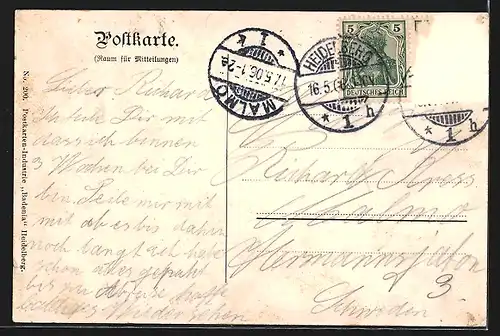 Postkarte.
(Raum für Mitteilungen)
Lieber Richard
Ich teile Dir mit
dass ich binnen
3 Wochen bei Dir
bin. Teile mir mit
mit ob es bis dahin
noch langt ich habe
schon alles gepackt
bis zur Abreise
baldiges Wiedersehen
No. 290. Postkarten-Industrie „Badenia" Heidelberg.
MALMÖ
17.5.06.1-2
1
HEIDELBERG
16.5.
* 1 h
5 5
DEUTSCHES REICH
* 1 h
Richard Kress
Malmö
3.
Schweden